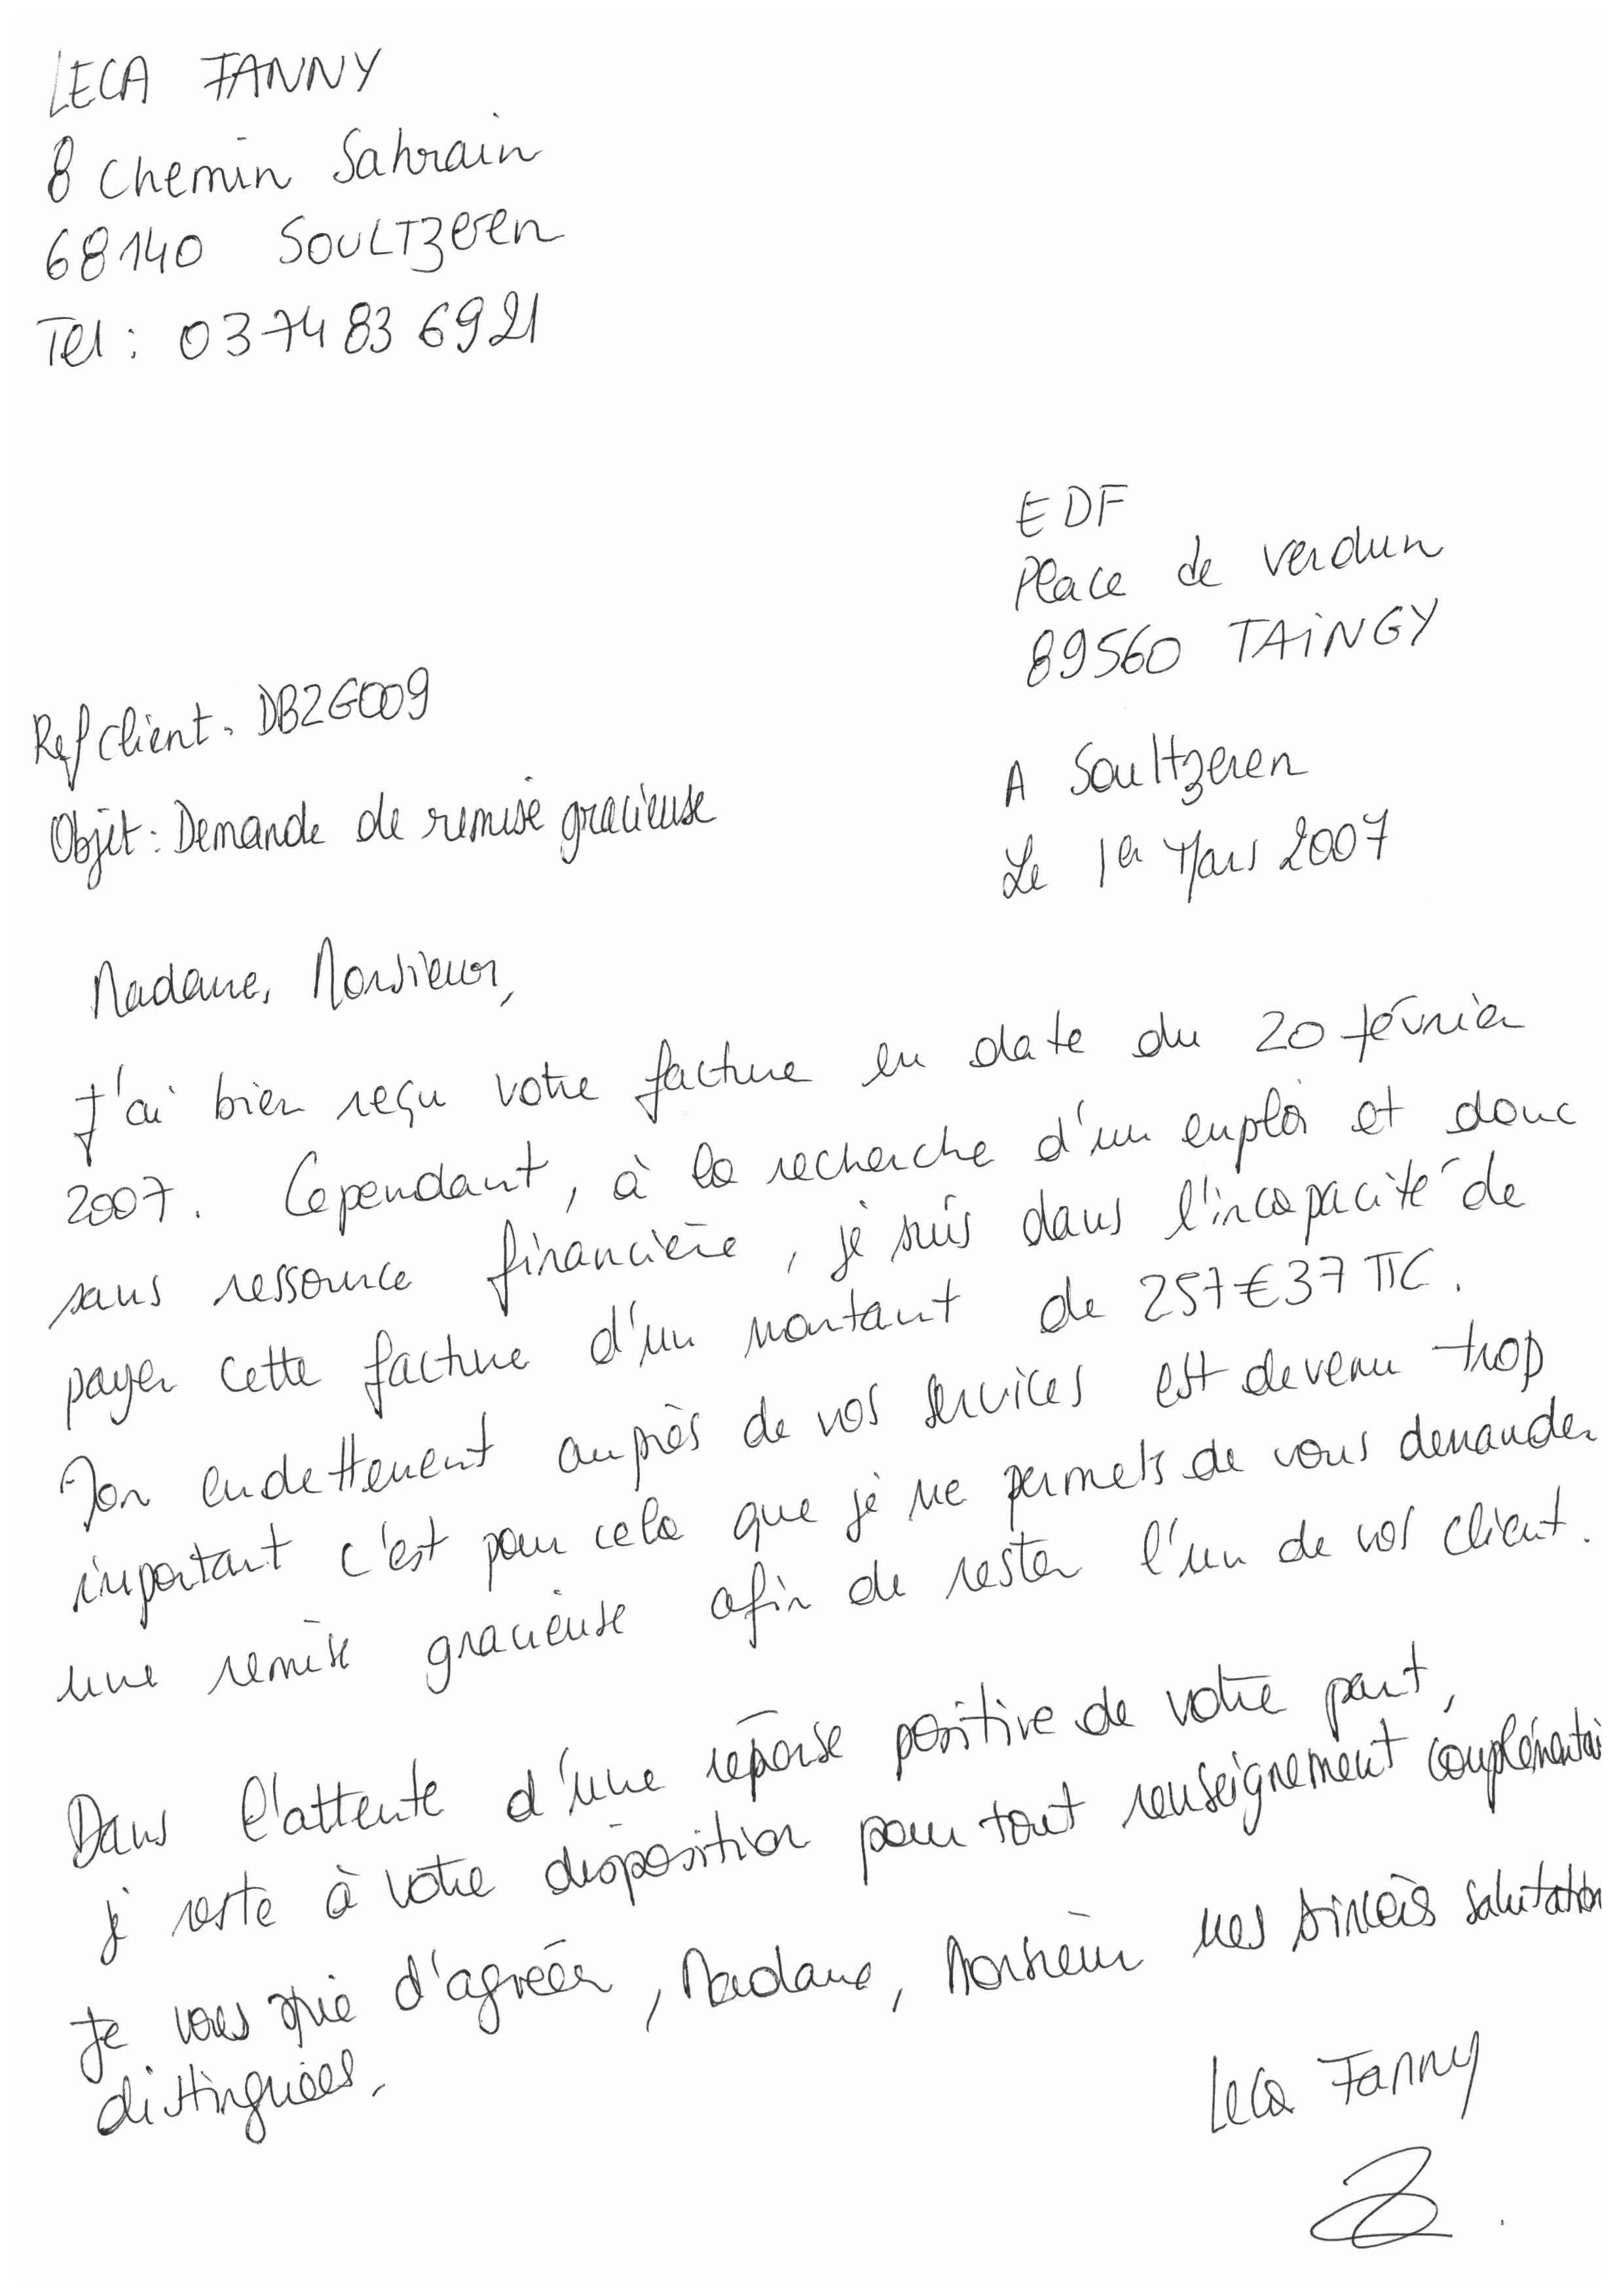 LECA FANNY
8 Chemin Sahrain
68140 SOULTZeren
Tel : 03 74 83 69 21
EDF
Place de verdun
89560 TAiNGY
Ref client : DB2G009
Objet : Demande de remise gracieuse
A Soultzeren
Le 1er Mars 2007
Madame, Monsieur,
J'ai bien reçu votre facture en date du 20 février
2007. Cependant, à la recherche d'un emploi et donc
sans ressource financière, je suis dans l'incapacité de
payer cette facture d'un montant de 257€37 TTC.
Mon endettement auprès de vos services est devenu trop
important c'est pour cela que je me permets de vous demander
une remise gracieuse afin de rester l'un de vos client.
Dans l'attente d'une réponse positive de votre part,
je reste à votre disposition pour tout renseignement complémentai
Je vous prie d'agréer, Madame, Monsieur mes sincères salutation
distinguées.
Leca Fanny